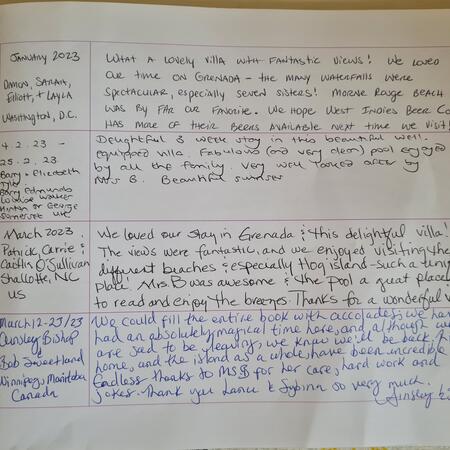 January 2023
Damon, Sarah,
Elliott, + Layla
Washington, D.C.
What a lovely villa with fantastic views! We loved
our time on Grenada - the many waterfalls were
spectacular, especially Seven Sisters! Morne Rouge Beach
was by far our favorite. We hope West Indies Beer Co
has more of their beers available next time we visit!
4.2.23 -
25.2.23
Barry + Elizabeth
Tyler
Barry Edmunds
St George
Somerset UK
Delightful 3 week stay in this beautiful well
equipped villa. Fabulous (and very clean) pool enjoyed
by all the family. Very well looked after by
Mrs B. Beautiful sunsets
March 2023.
Patrick, Carrie &
Caitlin O'Sullivan
Shallotte, NC
US
We loved our stay in Grenada & this delightful villa!
The views were fantastic, and we enjoyed visiting the
different beaches & especially Hog island - such a
place! Mrs B was awesome & the pool a great place
to read and enjoy the breezes. Thanks for a wonderful
March 12-23/23
Ainsley Bishop
&
Bob Sweetland
Winnipeg, Manitoba
Canada
We could fill the entire book with accolades; we have
had an absolutely magical time here, and, although we
are sad to be leaving, we know we'll be back.
home, and the island as a whole, have been incredible
Endless thanks to for her care, hard work and
jokes. Thank you Lance & so very much.
Ainsley &